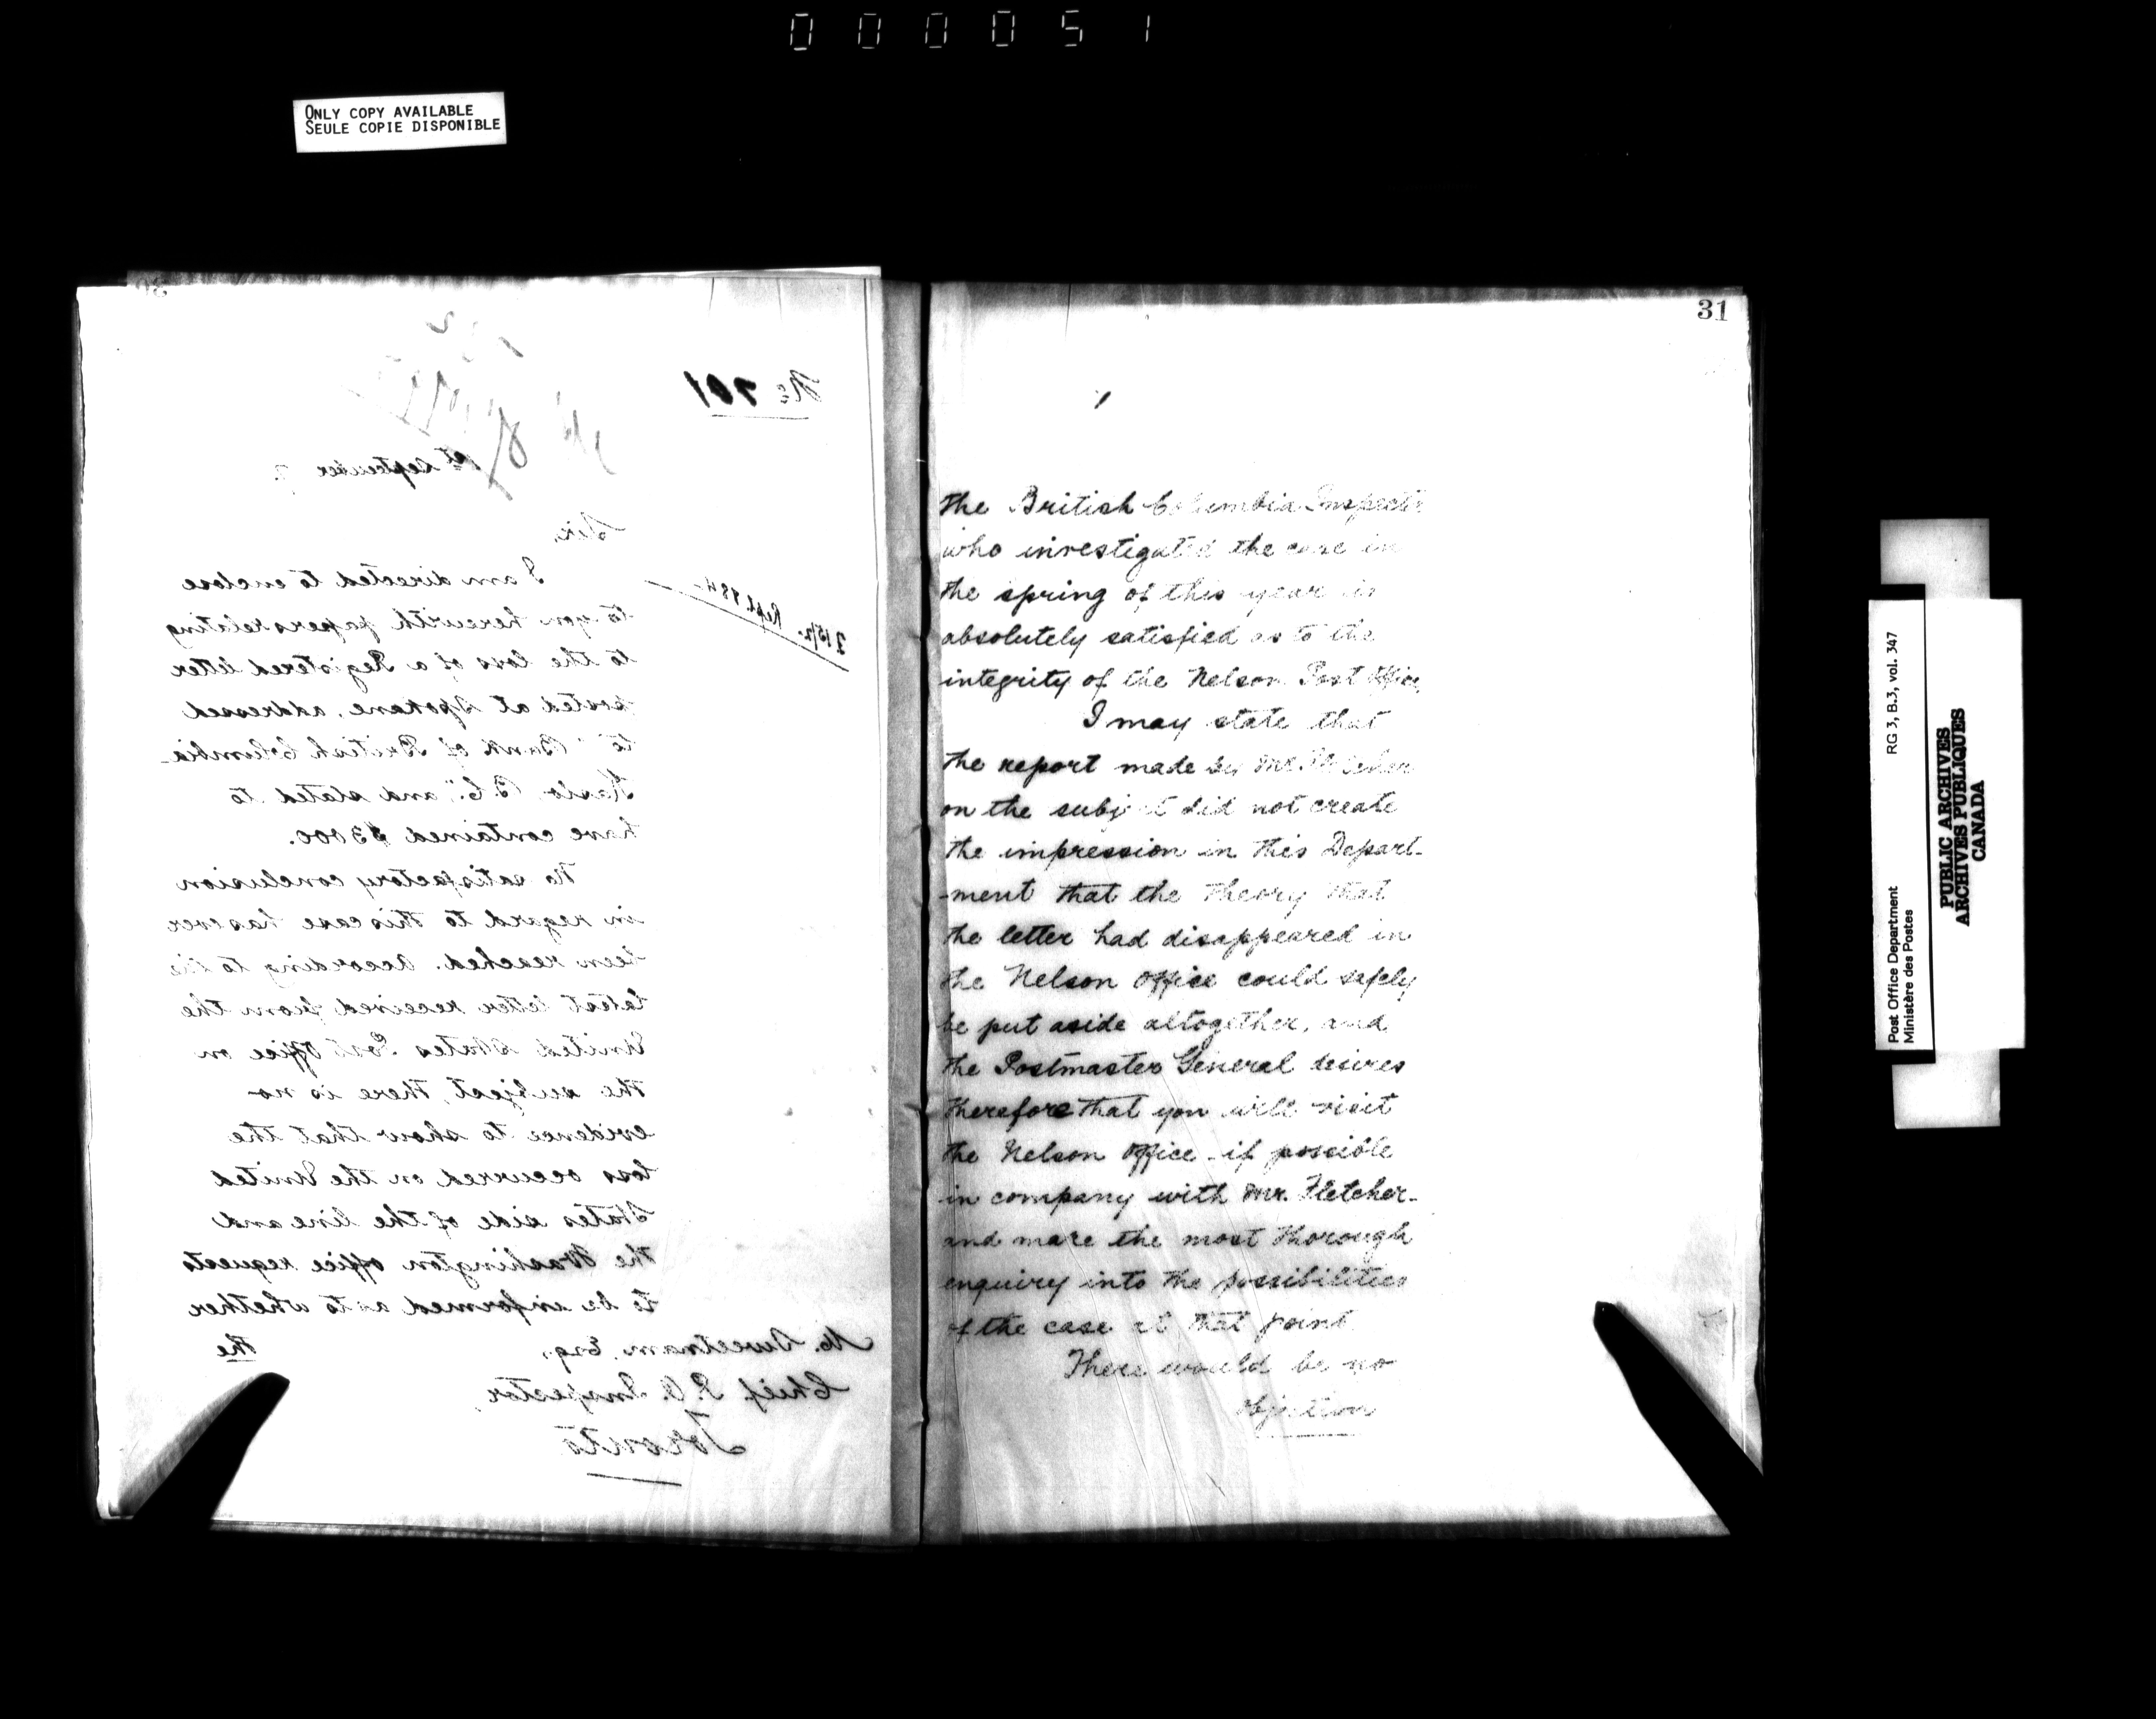 000051
ONLY COPY AVAILABLE
SEULE COPIE DISPONIBLE
30
No 701
1st September 7
Sir,
I am directed to enclose
to you herewith papers relating
to the loss of a Registered letter
posted at Spokane, addressed
to "Bank of British Columbia
Kaslo, B.C.", and stated to
have contained $3000.
No satisfactory conclusion
in regard to this case has ever
been reached. According to the
latest letter received from the
United States Post Office on
the subject, there is no
evidence to show that the
loss occurred on the United
States side of the line and
the Washington office requests
to be informed as to whether
the
M. Sweetnam, Esq.,
Chief P.O. Inspector,
Toronto
31
the British Columbia Inspector
who investigated the case in
the spring of this year is
absolutely satisfied as to the
integrity of the Nelson Post Office,
I may state that
the report made by Mr. Fletcher
on the subject did not create
the impression in this Depart-
-ment that the theory that
the letter had disappeared in
the Nelson Office could safely
be put aside altogether, and
the Postmaster General desires
therefore that you will visit
the Nelson Office - if possible
in company with Mr. Fletcher -
and make the most thorough
enquiry into the possibilities
of the case at that point.
There would be no
objection
Post Office Department RG 3, B.3, vol. 347
Ministère des Postes
PUBLIC ARCHIVES
ARCHIVES PUBLIQUES
CANADA